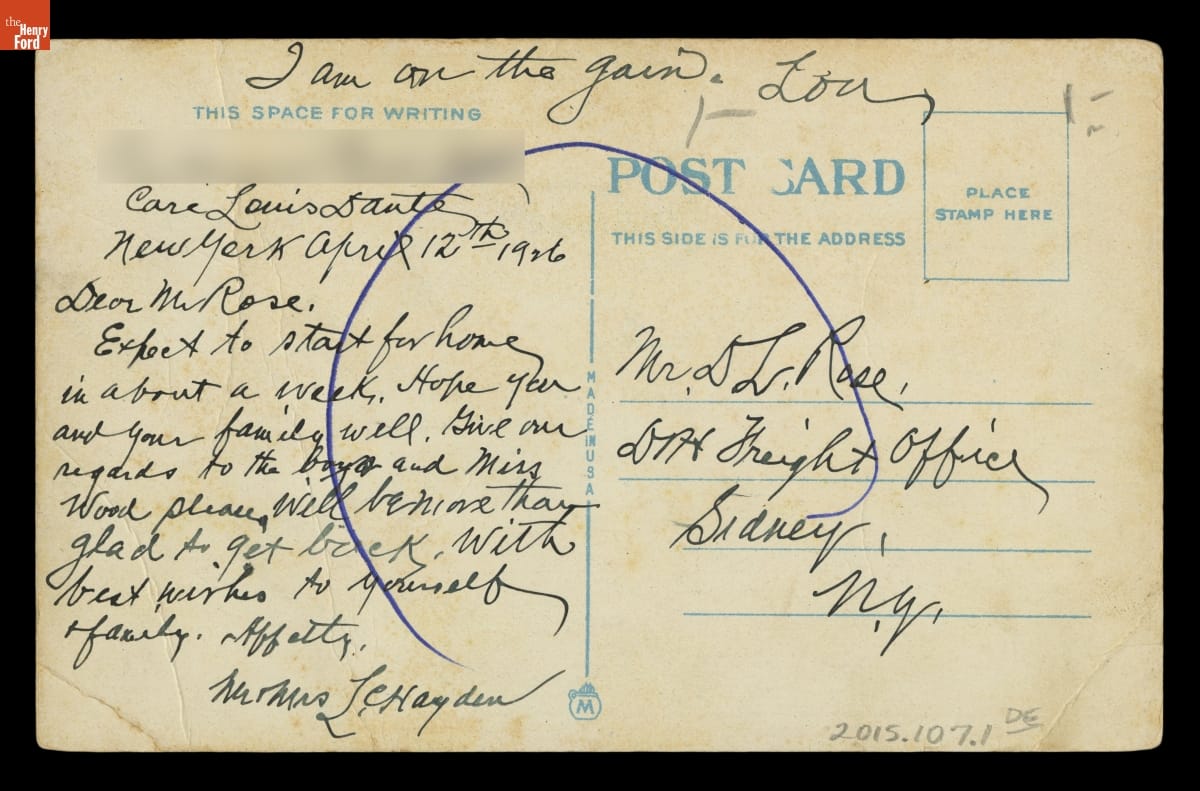 the
Henry
Ford
I am on the gain. Lou
THIS SPACE FOR WRITING
Care Louis Dante
New York April 12th 1926
Dear Mr Rose.
Expect to start for home
in about a week. Hope you
and your family well. Give our
regards to the boys and Miss
Wood please, Will be more than
glad to get back. With
best wishes to yourself
+ family. Affctly,
Mr & Mrs L. C. Hayden
POST CARD
THIS SIDE IS FOR THE ADDRESS
PLACE
STAMP HERE
MADE IN USA
Mr. D L. Rose,
D&H Freight Office
Sidney,
N.Y.
M
2015.107.1
DE